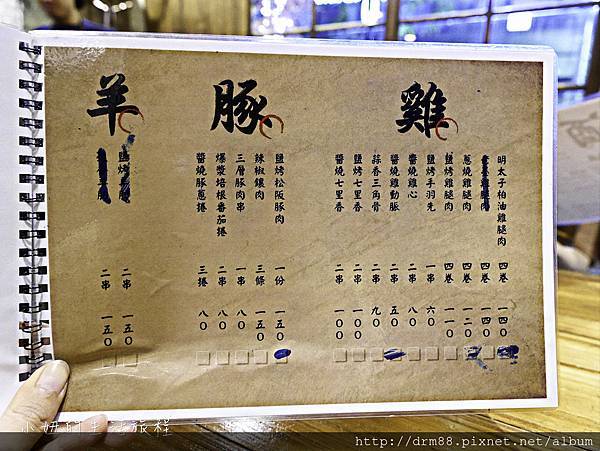 雞
明太子柏油雞腿肉 四卷 一四0
四卷 一四0
蔥燒雞腿肉 四卷 一二0
鹽烤雞腿肉 四卷 一一0
鹽烤手羽先 一串 六0
醬燒雞心 二串 八0
醬燒雞動脈 二串 五0
蒜香三角骨 二串 九0
鹽烤七里香 二串 一00
醬燒七里香 二串 一00
豚
鹽烤松阪豚肉 一份 一五0
辣椒鑲肉 三條 一五0
三層豚肉串 一串 八0
爆漿培根番茄捲 二串 八0
醬燒豚蔥捲 三捲 八0
羊
鹽烤 二串 一五0
二串 一五0
小妞的生活旅程
http://drm88.pixnet.net/album